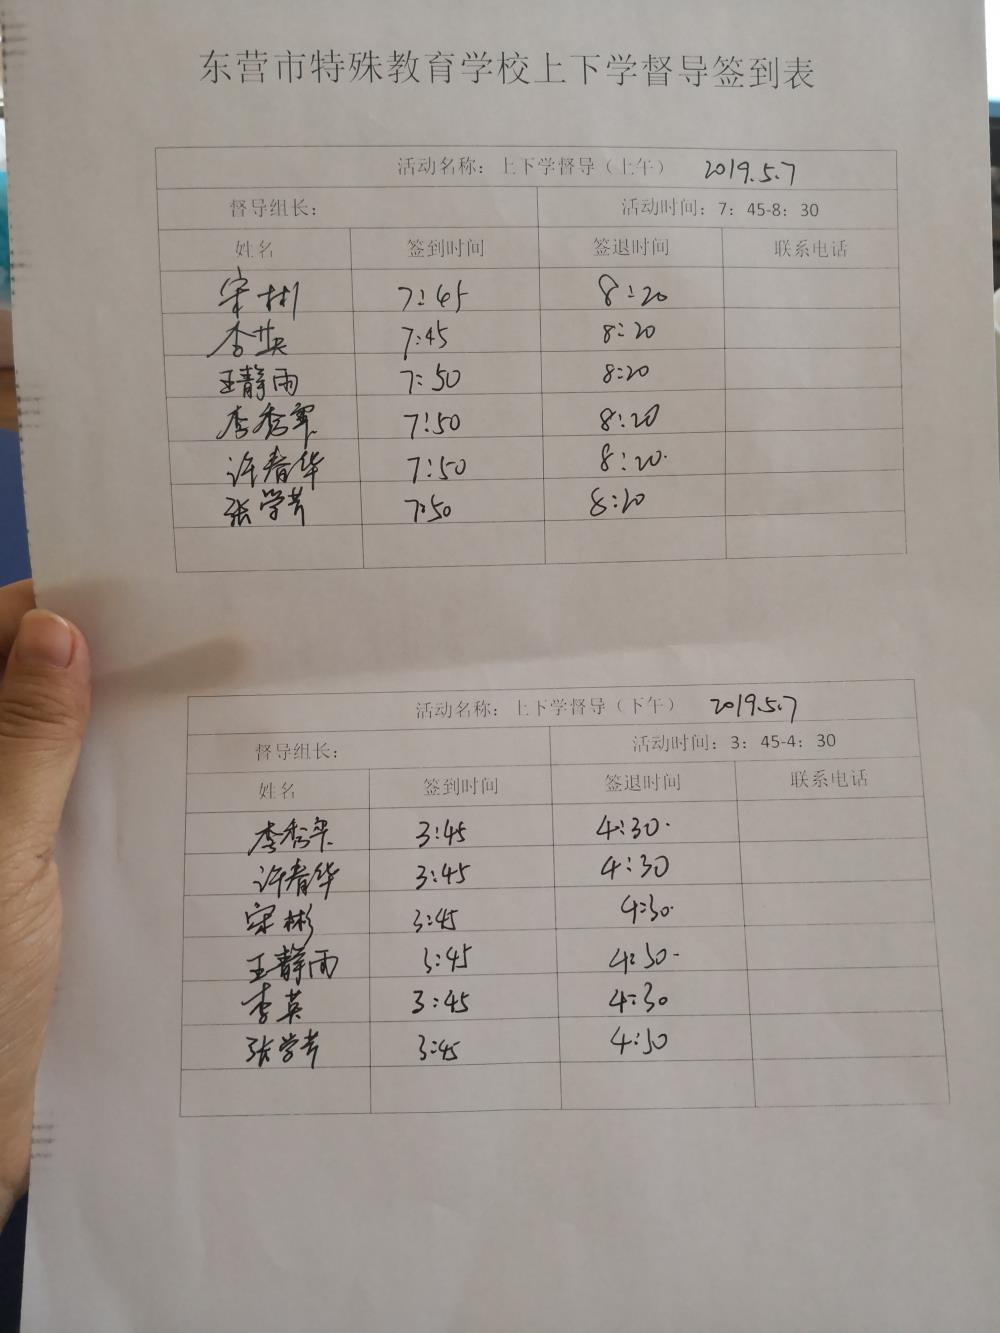 东营市特殊教育学校上下学督导签到表
活动名称：上下学督导（上午） 2019.5.7
督导组长： 活动时间：7：45-8：30
姓名 签到时间 签退时间 联系电话
宋彬 7:45 8:20
李英 7:45 8:20
王静雨 7:50 8:20
李秀军 7:50 8:20
许春华 7:50 8:20.
张学芳 7:50 8:20
活动名称：上下学督导（下午） 2019.5.7
督导组长： 活动时间：3：45-4：30
姓名 签到时间 签退时间 联系电话
李秀军 3:45 4:30.
许春华 3:45 4:30
宋彬 3:45 4:30.
王静雨 3:45 4:30.
李英 3:45 4:30
张学芳 3:45 4:30